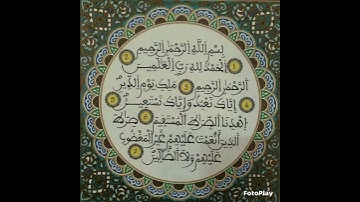 بِسْمِ اللَّهِ الرَّحْمَٰنِ الرَّحِيمِ
۝١ الْحَمْدُ لِلَّهِ رَبِّ الْعَالَمِينَ ۝٢
الرَّحْمَٰنِ الرَّحِيمِ ۝٣ مَالِكِ يَوْمِ الدِّينِ
۝٤ إِيَّاكَ نَعْبُدُ وَإِيَّاكَ نَسْتَعِينُ ۝٥
اهْدِنَا الصِّرَاطَ الْمُسْتَقِيمَ ۝٦ صِرَاطَ
الَّذِينَ أَنْعَمْتَ عَلَيْهِمْ غَيْرِ الْمَغْضُوبِ
عَلَيْهِمْ وَلَا الضَّالِّينَ ۝٧
FotoPlay